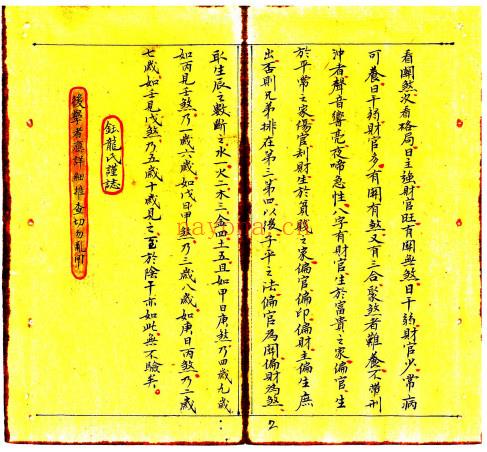 看關煞次看格局日主強財官旺有關無煞日干弱財官少常病
可養日干弱財官多有關有煞又有三合聚煞者難養不帶刑
沖者聲音響亮夜啼急性八字有財官生於富貴之家偏官生
於平常之家傷官刦財生於貧賤之家偏官偏印偏財主偏生庶
出否則兄弟排在第三第四以後子平之法偏官為關偏財為煞
2
取生辰之數斷之水一火二木三金四土五且如甲日庚煞乃四歲九歲
如丙見壬煞乃一歲六歲如戊日甲煞乃三歲八歲如庚日丙煞乃二歲
七歲如壬見戊煞乃五歲十歲見之至於陰干亦如此無不驗矣
鈺龍氏謹誌
後學者應詳細推查切勿亂用
nayona.cn